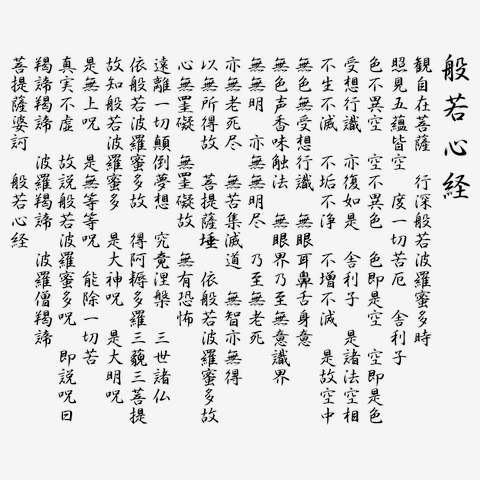 般若心経
観自在菩薩 行深般若波羅蜜多時
照見五蘊皆空 度一切苦厄 舎利子
色不異空 空不異色 色即是空 空即是色
受想行識 亦復如是 舎利子 是諸法空相
不生不滅 不垢不浄 不増不減 是故空中
無色無受想行識 無眼耳鼻舌身意
無色声香味触法 無眼界乃至無意識界
無無明 亦無無明尽 乃至無老死
亦無老死尽 無苦集滅道 無智亦無得
以無所得故 菩提薩埵 依般若波羅蜜多故
心無罣礙 無罣礙故 無有恐怖
遠離一切顛倒夢想 究竟涅槃 三世諸仏
依般若波羅蜜多故 得阿耨多羅三藐三菩提
故知般若波羅蜜多 是大神呪 是大明呪
是無上呪 是無等等呪 能除一切苦
真実不虚 故説般若波羅蜜多呪 即説呪曰
羯諦羯諦 波羅羯諦 波羅僧羯諦
菩提薩婆訶 般若心経